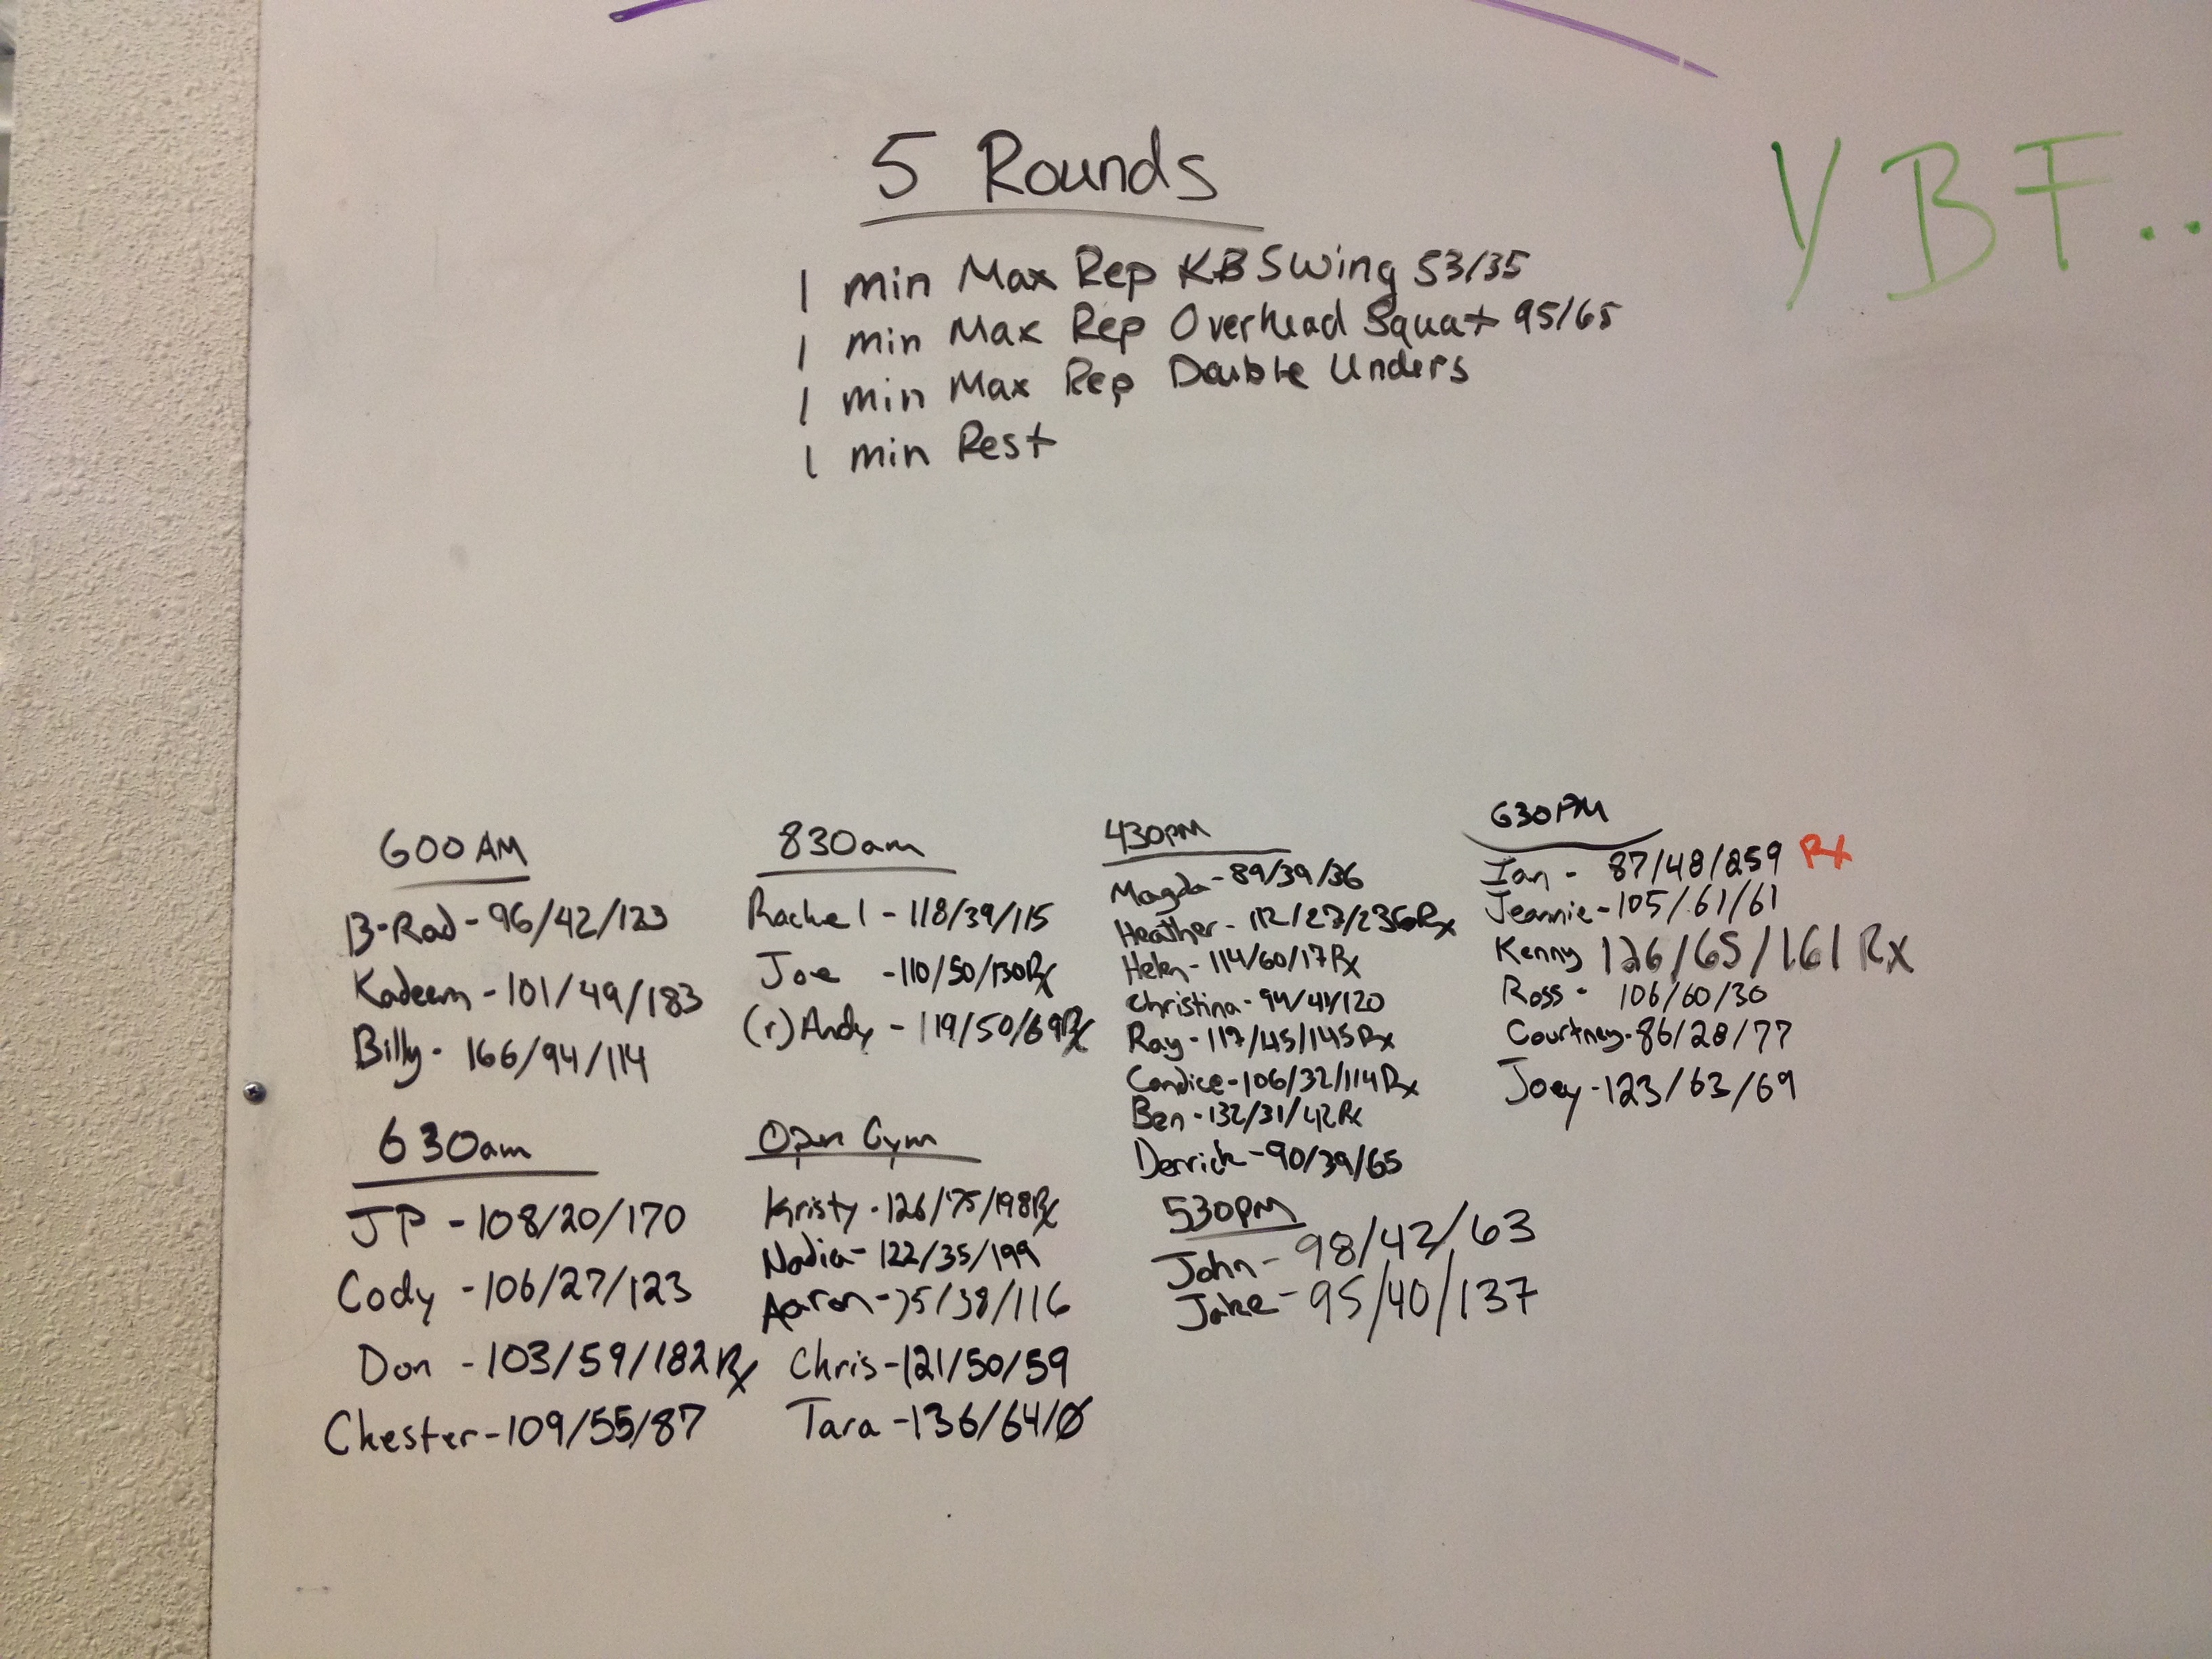 5 Rounds
1 min Max Rep KB Swing 53/35
1 min Max Rep Overhead Squat 95/65
1 min Max Rep Double Unders
1 min Rest
YBF..
600 AM
B-Rad - 96/42/123
Kadeem - 101/49/183
Billy - 166/94/114
630am
JP - 108/20/170
Cody - 106/27/123
Don - 103/59/182 Rx
Chester - 109/55/87
830am
Rachel - 118/39/115
Joe - 110/50/130 Rx
(r) Andy - 119/50/69 Rx
Open Gym
Kristy - 126/75/198 Rx
Nadia - 122/35/199
Aaron - 75/38/116
Chris - 121/50/59
Tara - 136/64/Ø
430PM
Magda - 89/39/36
Heather - 112/27/236 Rx
Helen - 114/60/17 Rx
Christina - 94/41/120
Ray - 117/45/145 Rx
Candice - 106/32/114 Rx
Ben - 132/31/42 Rx
Derrick - 90/39/65
530PM
John - 98/42/63
Jake - 95/40/137
630PM
Ian - 87/48/259 Rx
Jeannie - 105/61/61
Kenny 126/65/161 Rx
Ross - 106/60/30
Courtney - 86/28/77
Joey - 123/63/69